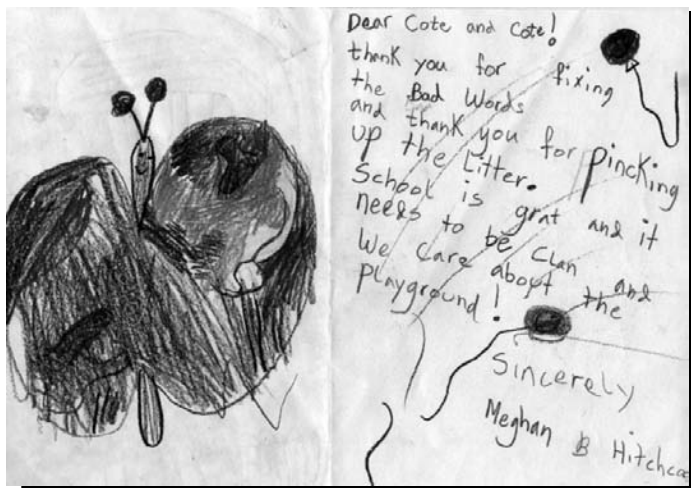 Dear Cote and Cote!
thank you for fixing
the Bad Words
and thank you for pincking
up the Litter.
School is grat and it
needs to be Clan and
We Care abopt the
playground!
Sincerely
Meghan B Hitchco